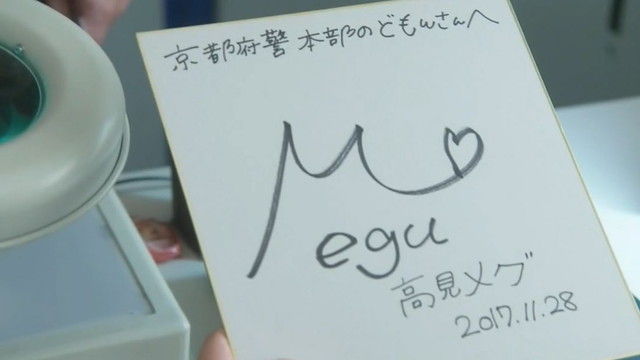 京都府警 本部のどもんさんへ
M♡
egu
高見メグ
2017.11.28